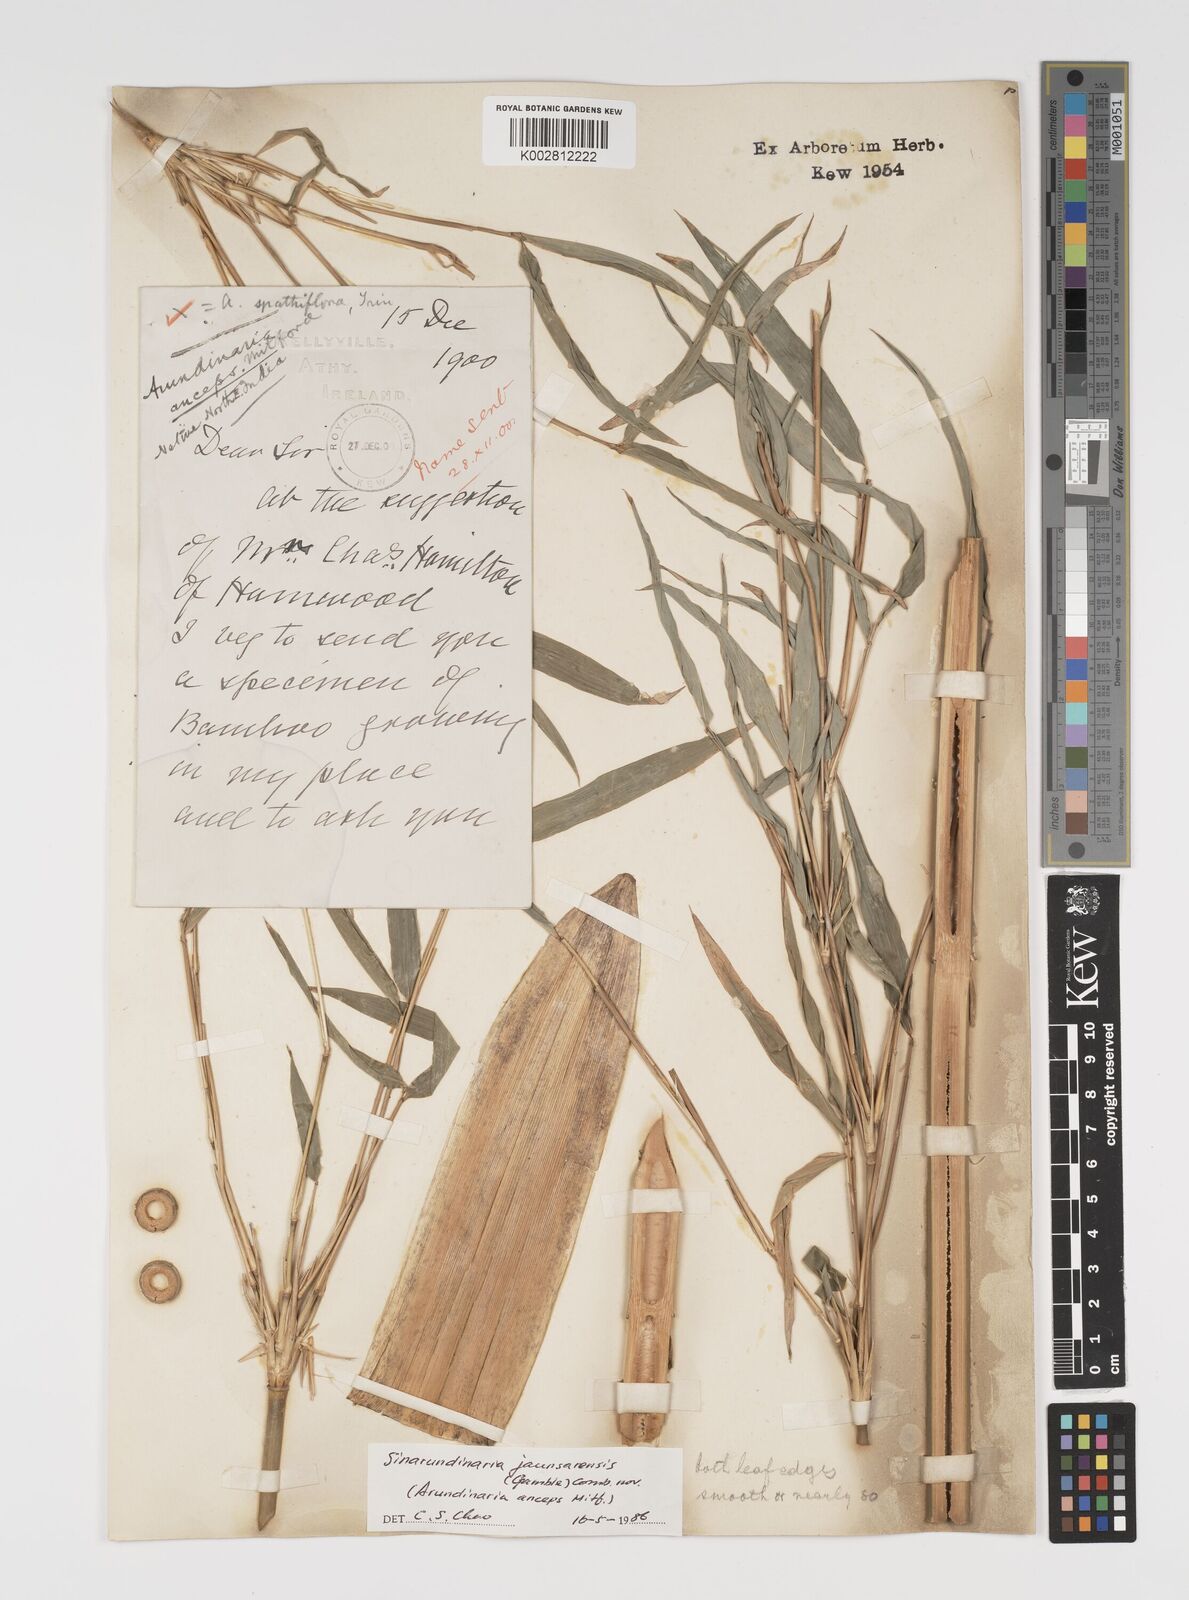 ROYAL BOTANIC GARDENS KEW
K002812222
Ex Arboretum Herb.
Kew 1954
x = A. spathiflora, Trin
Arundinaria
anceps. Mitford
Native North India
15 Dec
1900
KELLYVILLE.
ATHY.
IRELAND.
ROYAL GARDENS
27 DEC.00
KEW
Name Sent
28.XII.00.
Dear Sir
At the suggestion
of Mr Chas. Hamilton
of Hamwood
I beg to send you
a specimen of
Bamboo growing
in my place
and to ask you
Sinarundinaria jaunsarensis
(Gamble) Comb. nov.
(Arundinaria anceps Mitf.)
DET. C. S. Chao 16-5-1986
both leaf edges
smooth or nearly so
centimeters
M001051
Don Williams
Density
inches
Royal Botanic Gardens
Kew
0 1 2 3 4 5 6 7 8 9 10
cm
copyright reserved